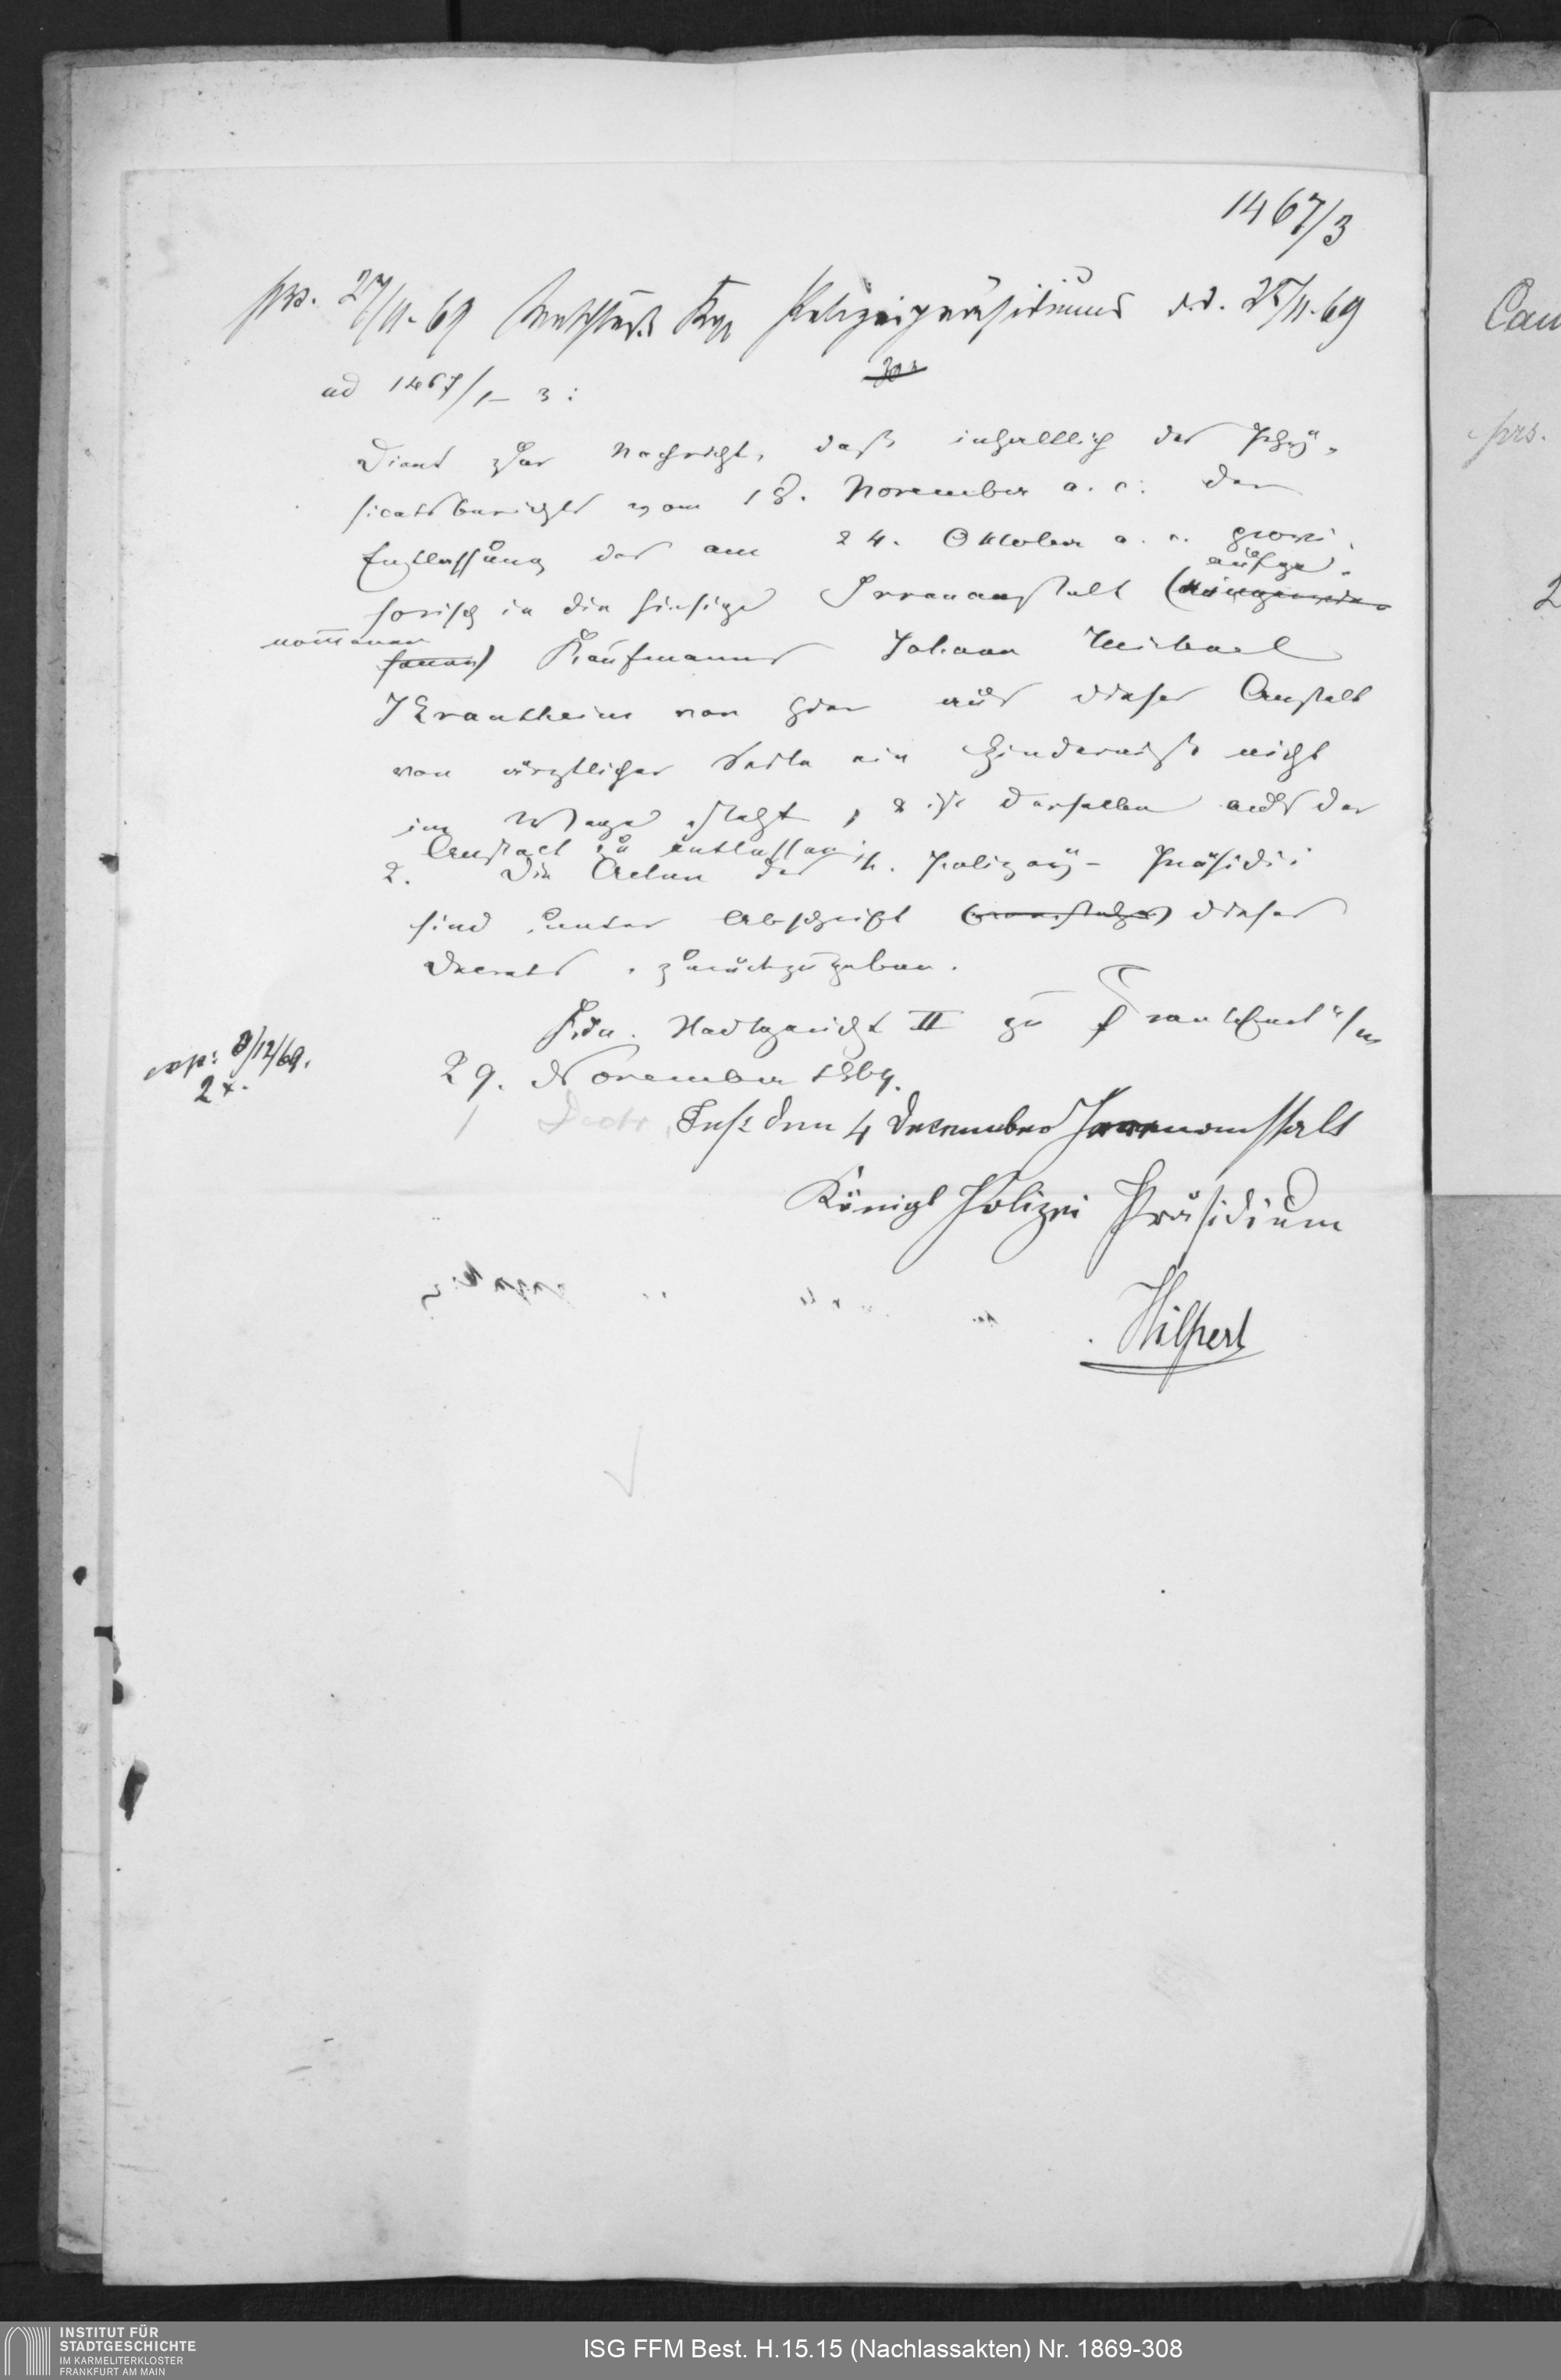 1467/3
prs. 27/11.69 Kgl Polizeipräsidiums d.d. 25/11.69
ad 1467/1–3:
Dient zur Nachricht, daß inhaltlich des Phy-
sicatsberichts vom 18. November a. c. der
Entlassung des am 24. Oktober a. c. provi-
aufge-
sorisch in die hiesige Irrenanstalt
nommenen
Kaufmanns Johann Michael
Krantheim von hier aus dieser Anstalt
von ärztlicher Seite ein Hinderniß nicht
im Wege steht, & ist derselbe aus der
Anstalt zu entlassen.
2. Die Acten des k. Polizey-Präsidii
sind unter Abschrift dieses
Decrets zurückzugeben.
Stadtgericht II zu Frankfurt a/m
29. November 1869.
exp: 3/12/69.
2 x.
Inst den 4 December Irrenanstalt
Königl Polizei Präsidium
Hilpert
Can
prs.
2
INSTITUT FÜR
STADTGESCHICHTE
IM KARMELITERKLOSTER
FRANKFURT AM MAIN
ISG FFM Best. H.15.15 (Nachlassakten) Nr. 1869-308